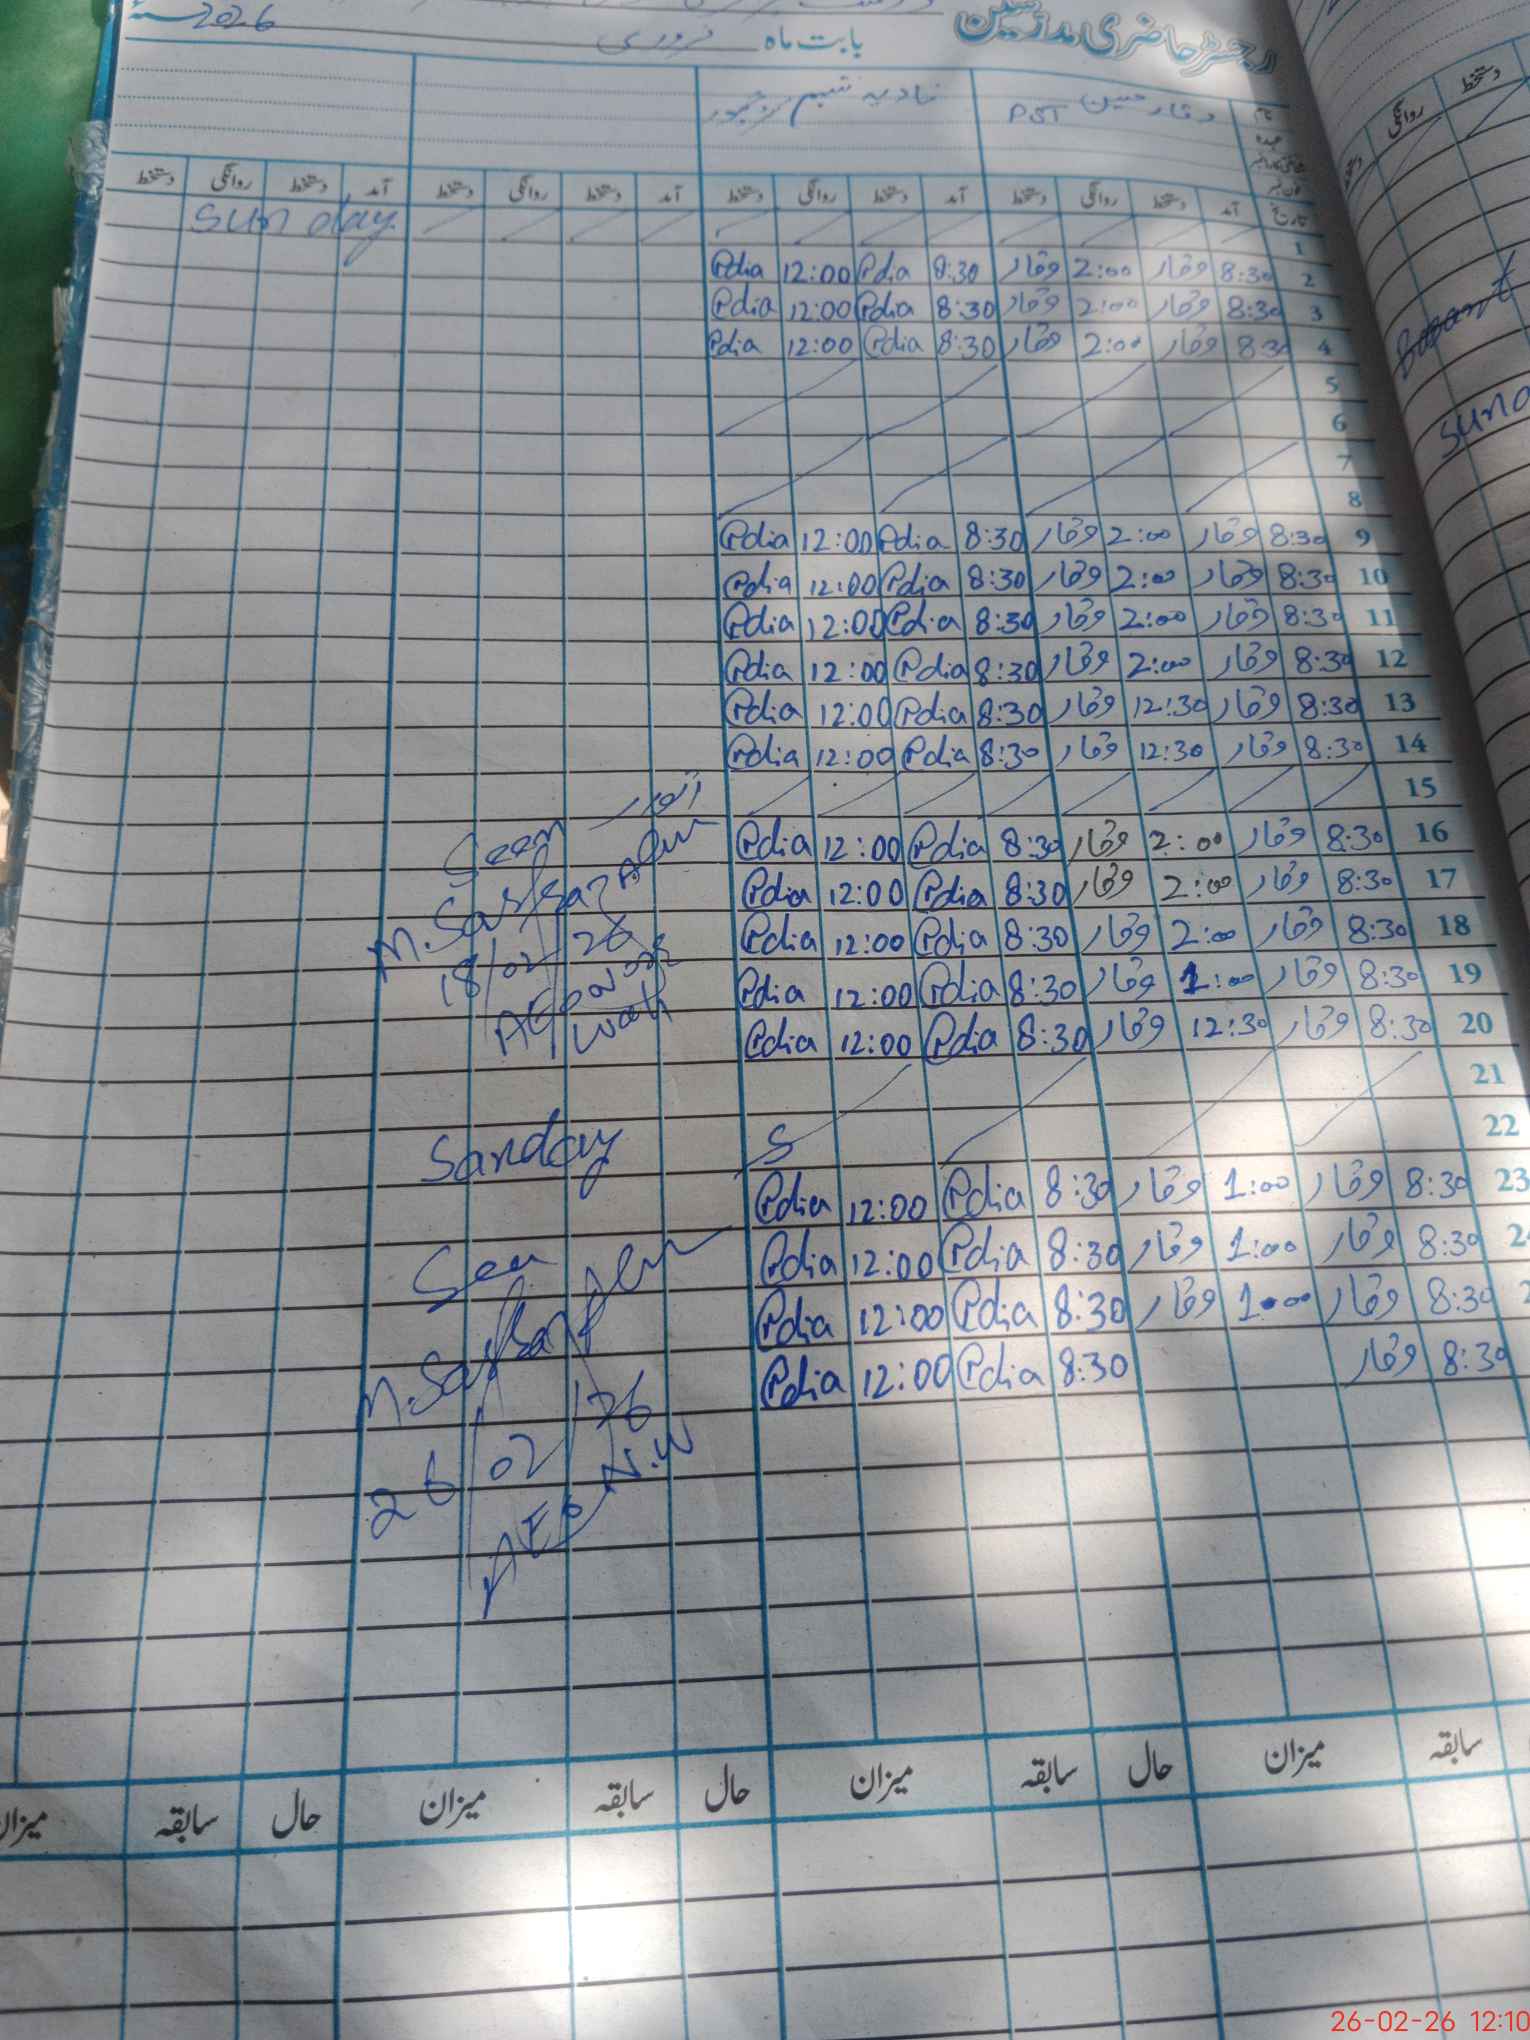 رجسٹر حاضری مدرسین بابت ماہ فروری سنہ 2026
نام وقار حسین نادیہ نسیم
عہدہ PST
تاریخ آمد دستخط روانگی دستخط آمد دستخط روانگی دستخط آمد دستخط روانگی دستخط آمد دستخط روانگی دستخط
1 Sunday
2 8:30 وقار 2:00 وقار 8:30 Pdia 12:00 Pdia
3 8:30 وقار 2:00 وقار 8:30 Pdia 12:00 Pdia
4 8:30 وقار 2:00 وقار 8:30 Pdia 12:00 Pdia
5
6
7
8
9 8:30 وقار 2:00 وقار 8:30 Pdia 12:00 Pdia
10 8:30 وقار 2:00 وقار 8:30 Pdia 12:00 Pdia
11 8:30 وقار 2:00 وقار 8:30 Pdia 12:00 Pdia
12 8:30 وقار 2:00 وقار 8:30 Pdia 12:00 Pdia
13 8:30 وقار 12:30 وقار 8:30 Pdia 12:00 Pdia
14 8:30 وقار 12:30 وقار 8:30 Pdia 12:00 Pdia
15 اتوار
16 8:30 وقار 2:00 وقار 8:30 Pdia 12:00 Pdia
Seen
17 8:30 وقار 2:00 وقار 8:30 Pdia 12:00 Pdia
M. Sarfraz
18 8:30 وقار 2:00 وقار 8:30 Pdia 12:00 Pdia
18/02/26
19 8:30 وقار 1:00 وقار 8:30 Pdia 12:00 Pdia
AEO
20 8:30 وقار 12:30 وقار 8:30 Pdia 12:00 Pdia
21
22 S Sanday
23 8:30 وقار 1:00 وقار 8:30 Pdia 12:00 Pdia
8:30 وقار 1:00 وقار 8:30 Pdia 12:00 Pdia
Seen
8:30 وقار 1:00 وقار 8:30 Pdia 12:00 Pdia
M. Sarfraz
8:30 وقار 8:30 Pdia 12:00 Pdia
26/02/26
AEO N.W
سابقہ میزان حال سابقہ میزان حال سابقہ میزان حال سابقہ میزان
26-02-26 12:10